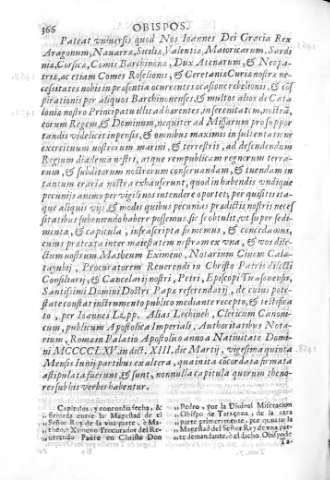 366 OBISPOS.
Pateat vniuersis quod Nos Ioannes Dei Gracia Rex
Aragonum, Nauarra, Sicilia, Valentia, Maioricarum, Sardi
nia, Corsica, Comes Barchinona, Dux Atenarum, & Neopa-
tria, ac etiam Comes Rosilionis, & Ceretania Cum nostra ne-
cessitates nobis in presentia ocurentes ocasione rebelionis, & cōs
pirationis per aliquos Barchinonenses, & multos alios de Cata
lonia nostro Principatu illis adharentes, in
eorum Regem, & Dominum, nequiter ad
tandis videlicet inpensis, & omnibus maximis in sustentatione
exercituum nostrorum marini, & terrestrii, ad defendendum
Regium diadema nostri, atque rempublicam regnorum terra-
rum, & subditorum nostrorum conseruandam, & tuendam in
tantum eraria nostra exhauserunt, quod in habendis vndique
pecuniis animo per vigili nos intendere oportet, per quasitis ita-
que aliquis viis & modis quibus pecunias predictis nostris nece
sitatibus habere possemus, sic se obtulit, vt super sedi
menta, & capitula, infrascripta firmemus, & concedamus,
cuius pratexta inter maiestatem nostram ex vna, & vos dile-
ctum nostrum Matheum Eximeno, Notarium Ciuem Cala-
taiubij, Procuratorem Reuerendi in Christo Patris dilecti
Consiliarij, & Cancelarij nostri, Petri, Episcopi Tirasonensis,
Santissimi Domini Nostri Papa referendarij, de cuius potes-
tate constat instrumento publico mediante recepto, & testifica-
to, per Ioannes Alias Clericum Canoni-
cum, publicum Apostolica Imperiali, Authoritatibus Nota-
rium, Romam Palatio Apostolico anno a Natiuitate Domi-
ni MCCCCLXV. indict. XIII, die Martij, vigesima quinta
Mensis Iunij partibus ex altera, quia inita concordata firmata
astipulata fuerunt, & sunt, nonnulla capitula quorum theno-
res sub his verbis habentur.
Capitoles, y concordia fecha, &
firmada entre la Magestad de el
Señor Rey de la vna parte, è Ma-
theo, Ximeno Procurador del Re-
uerendo Padre en Christo Don
„ Pedro, por la Diuinal Miseracion
„ Obispo de Taraçona, de la otra
„ parte primerament, por quanto la
„ Magestad del Señor Rey de vna par-
„ te demandante, è el dicho Obispo de
Ta-